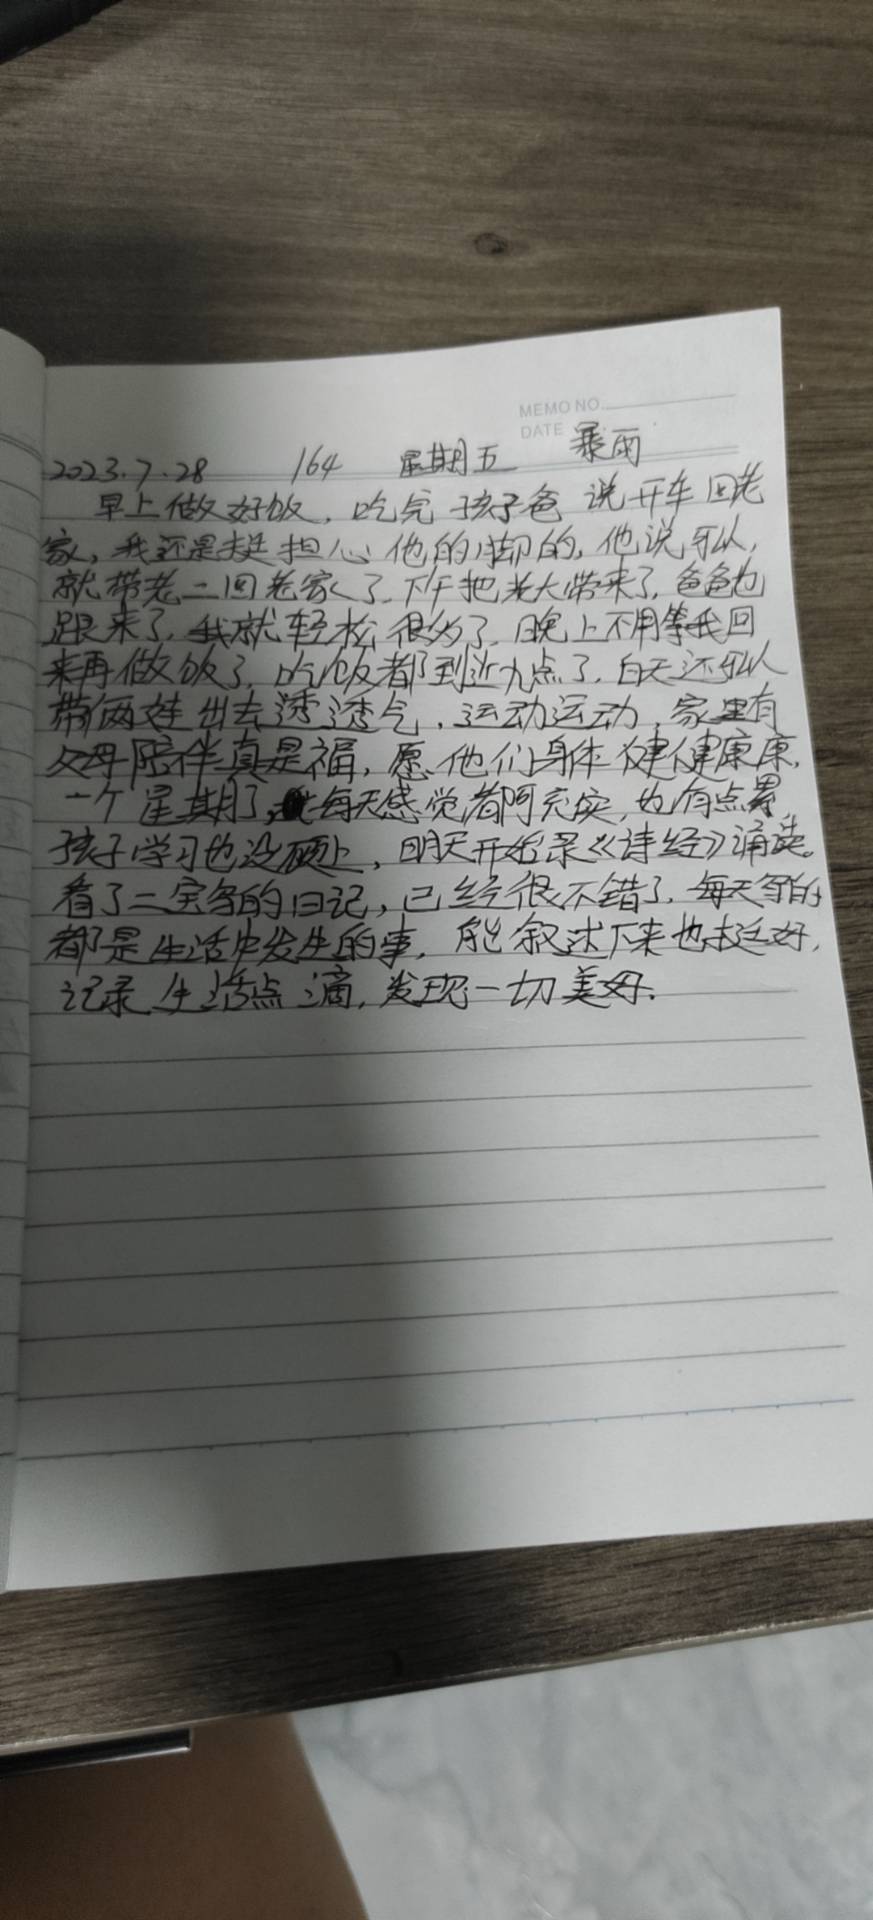 MEMO NO.
DATE
2023.7.28 164 星期五 暴雨
早上做好饭，吃完孩子爸说开车回老
家，我还是挺担心他的脚的，他说可以，
就带老二回老家了，下午把老大带来了，爸爸也
跟来了，我就轻松很多了，晚上不用等我回
来再做饭了，吃饭都到近九点了，白天还可以
带俩娃出去透透气，运动运动，家里有
父母陪伴真是福，愿他们身体健健康康，
一个星期了，每天感觉都阿充实，也有点累
孩子学习也没硬上，明天开始录《诗经》诵读。
看了二宝写的日记，已经很不错了，每天写的
都是生活中发生的事，能叙述下来也挺好，
记录生活点滴，发现一切美好.